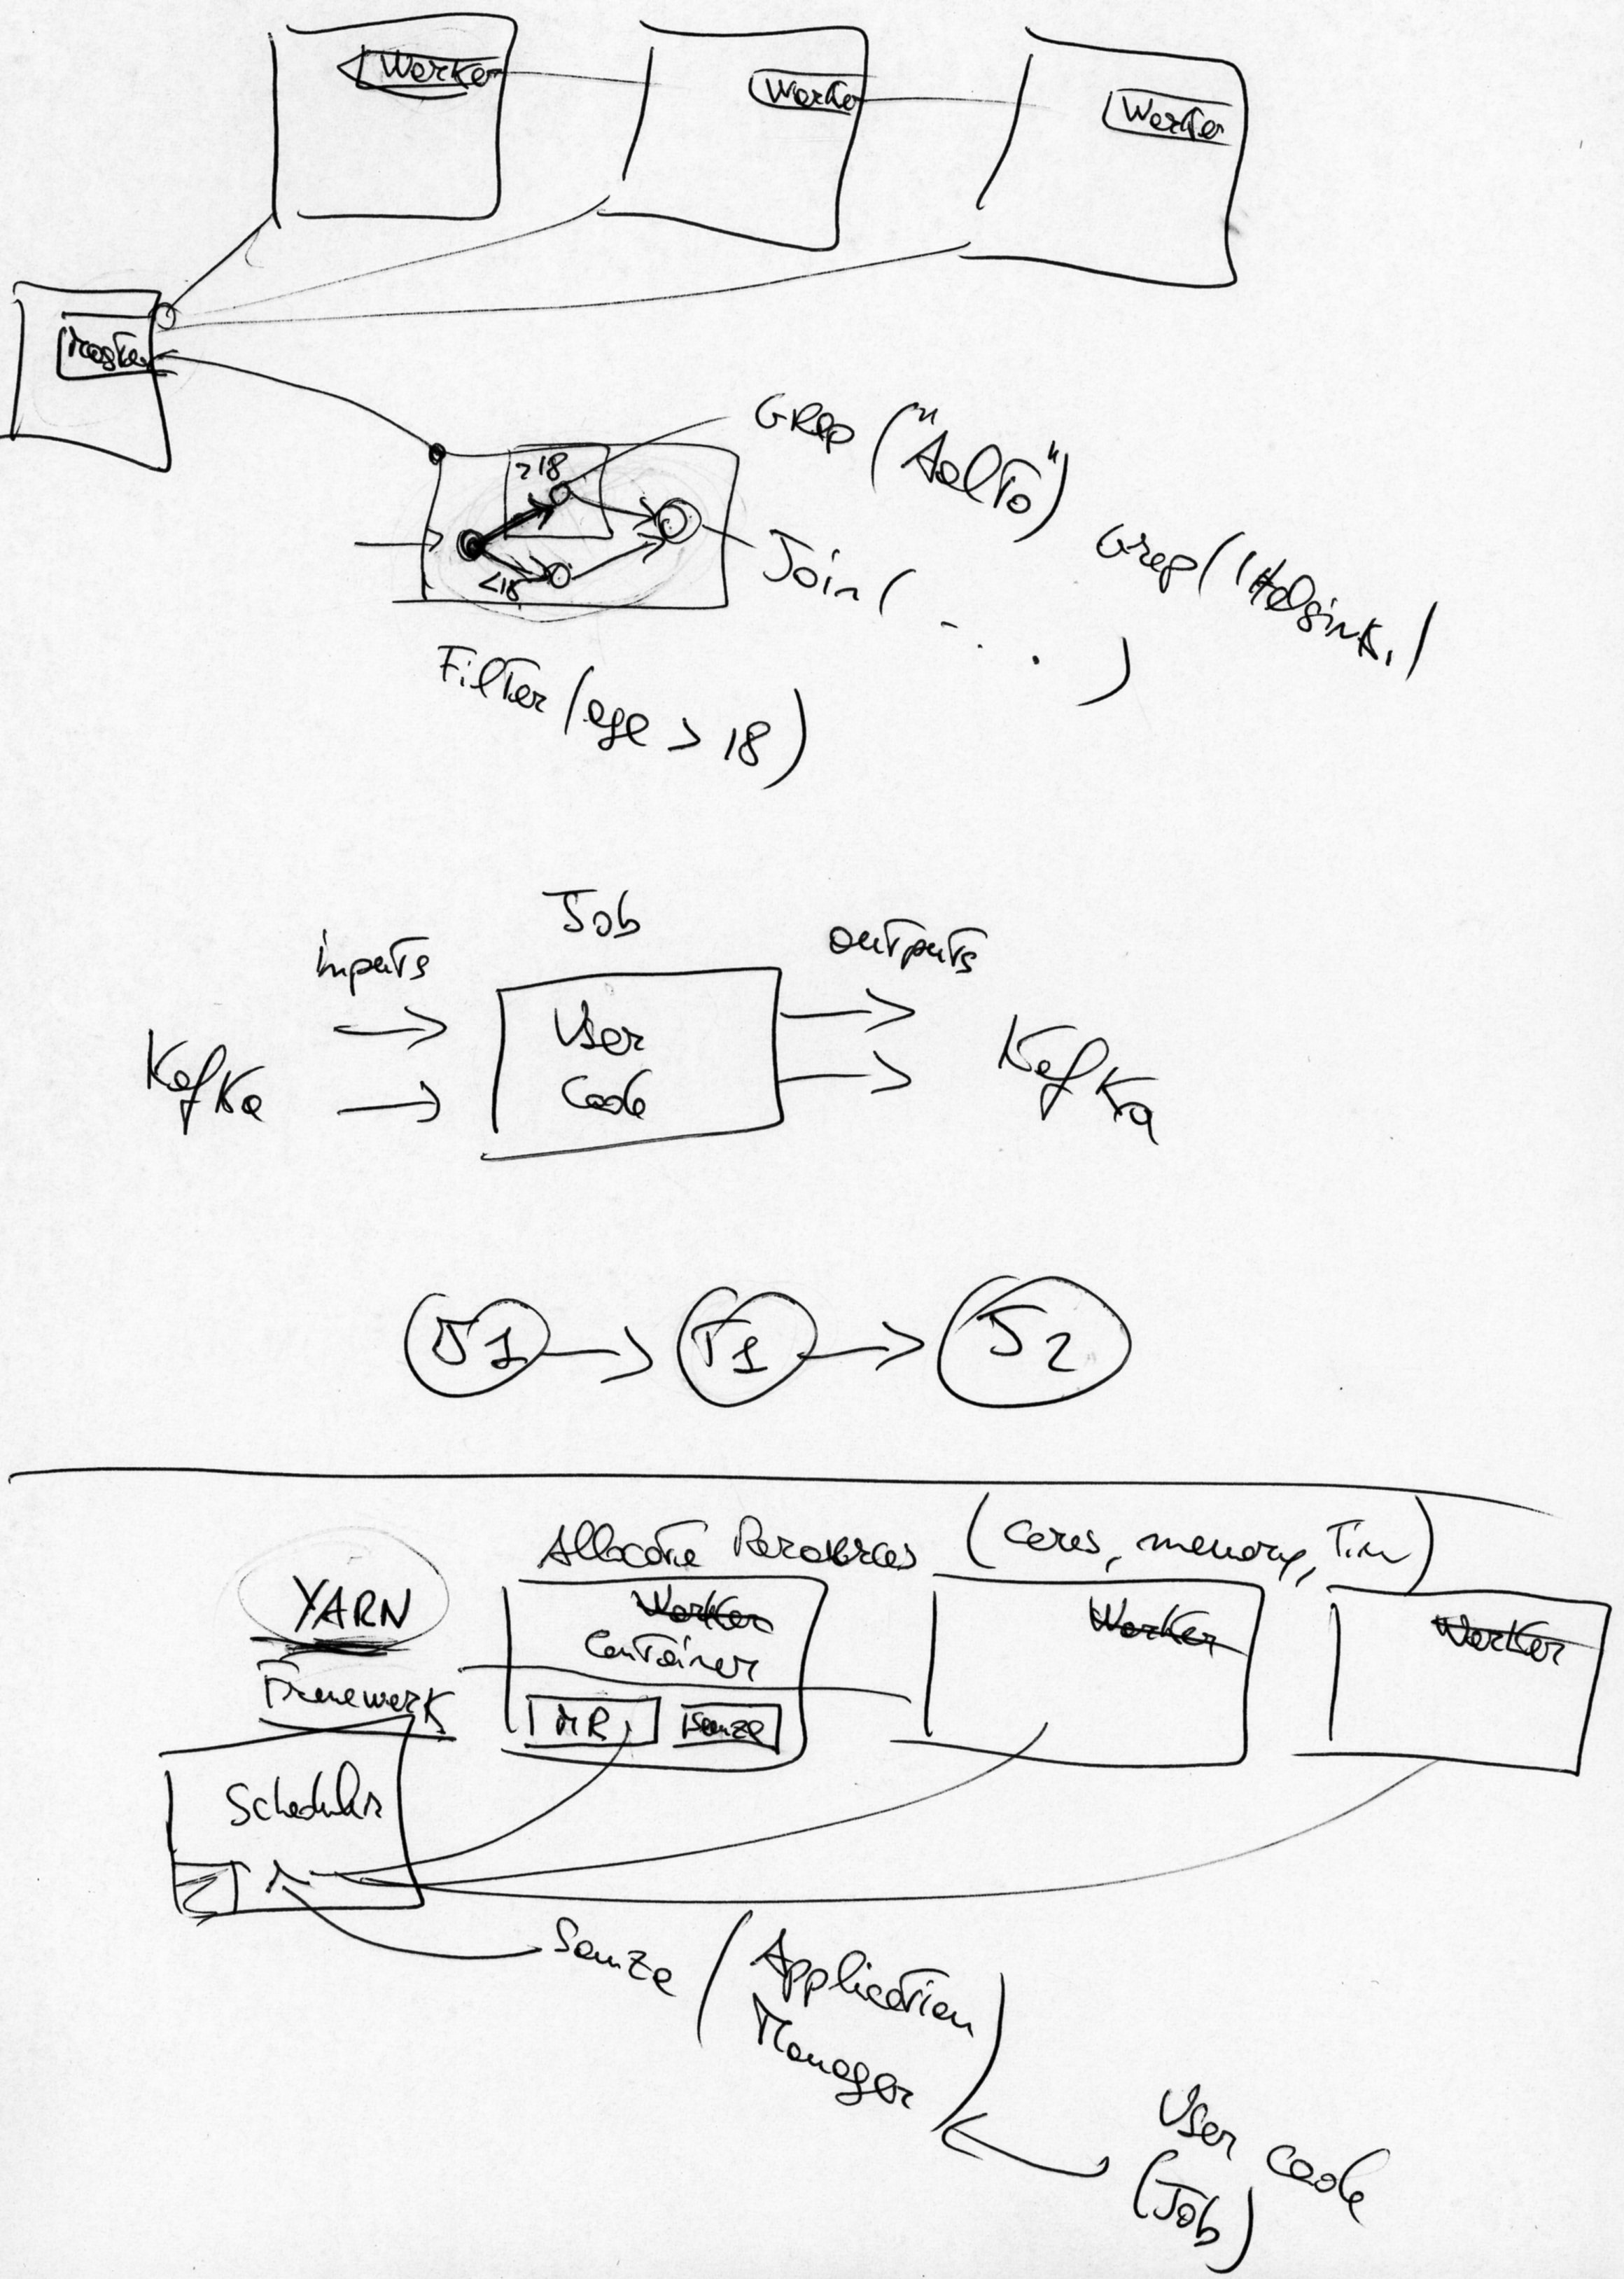 Worker
Worker
Worker
Master
Grep ("Aalto")
>18
<18
Grep("Helsinki)
Join( ... )
Filter (age > 18)
Job
inputs
outputs
User
Code
Kafka
Kafka
J1
T1
J2
Allocate Resources (cores, memory, Tim)
YARN
Worker
Worker
Worker
Container
Framework
MR
Samza
Scheduler
Samza (Application
Manager)
User code
(Job)